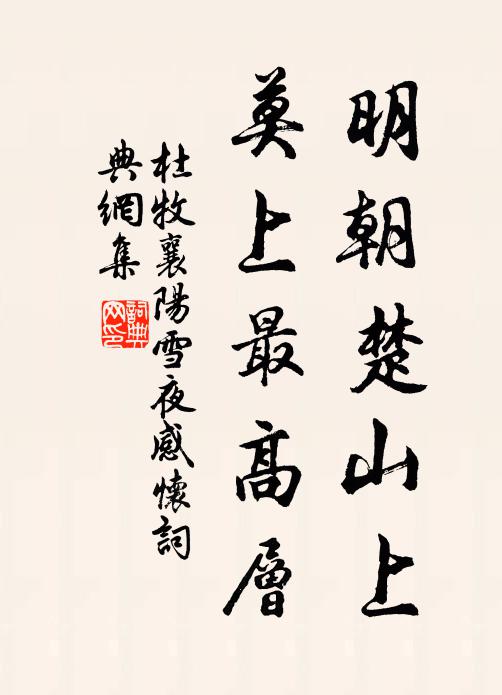 明朝楚山上
莫上最高層
杜牧襄陽雪夜感懷詞
典網集
詞典
网印